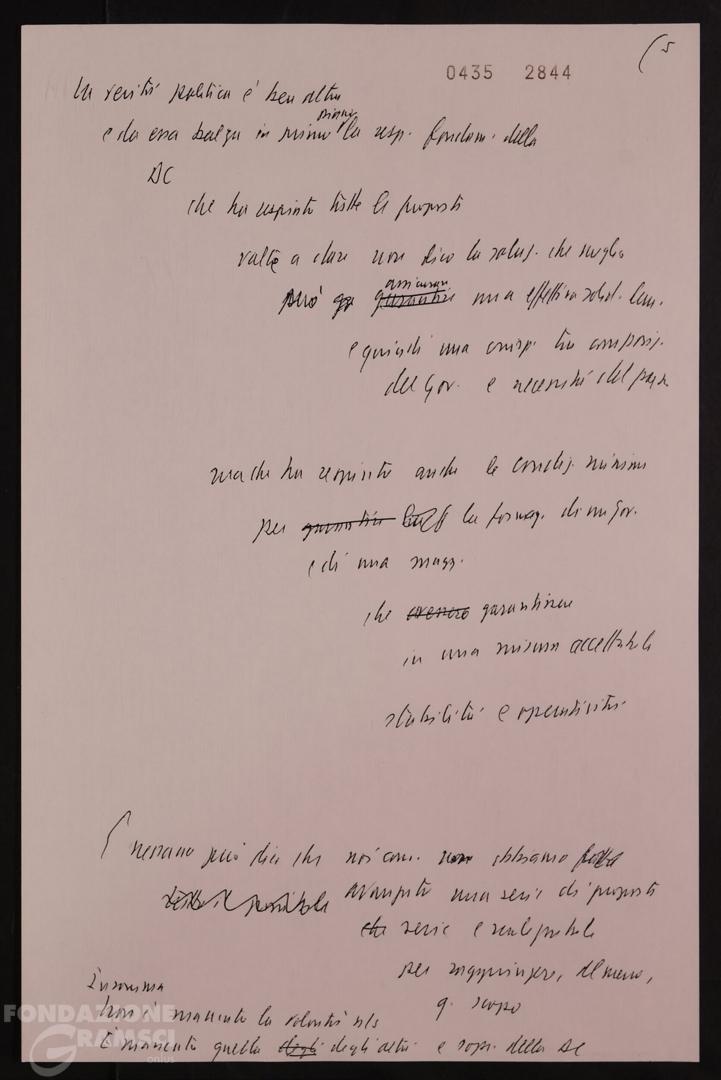 (5
0435 2844
La verità politica è ben altra
prima
e da essa balza in primo la resp. fondam. della
DC
che ha respinto tutte le proposte
volte a dare non dico la soluz. che meglio
assicurare
può garantire una effettiva solid. 
e quindi una corrisp. tra composiz.
del Gov. e necessità del paese
ma che ha respinto anche le condiz. minime
per garantire la formaz. di un Gov.
e di una magg.
che garantissero
in una misura accettabile
stabilità e operatività.
nessuno può dire che noi com. non abbiamo fatto
tutto il possibile avanzato una serie di proposte
che serie e realizzabili
per raggiungere, almeno,
q. scopo
Insomma
Non è mancata la volontà ns
È mancata quella degli degli altri e sopr. della DC
FONDAZIONE
GRAMSCI
onlus